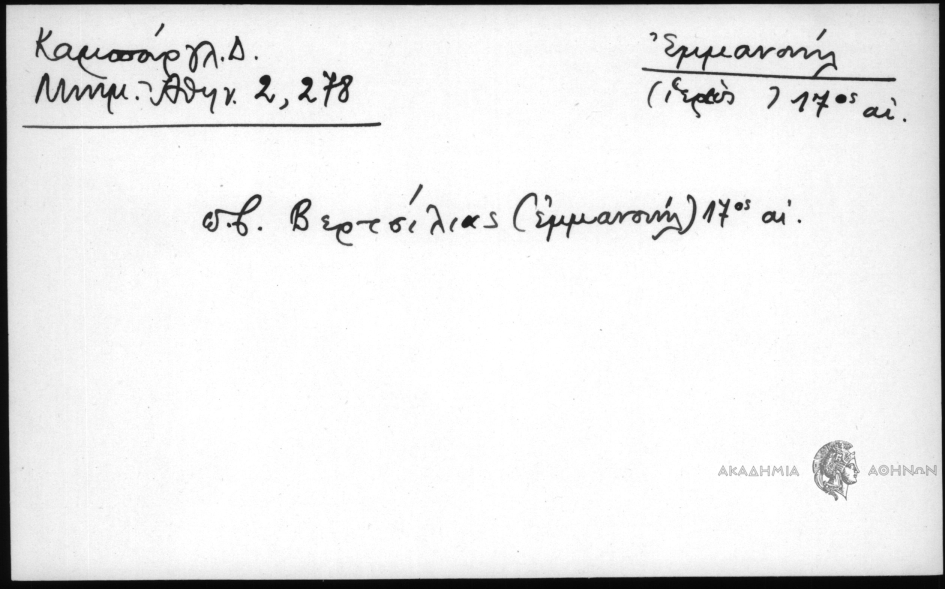 Καμπούργλ. Δ.
Μνημ. Ἀθην. 2, 278
Ἐμμανουήλ
(ἱερεὺς ) 17ος αἰ.
π.β. Βερτσίλιας (Ἐμμανουήλ) 17ος αἰ.
ΑΚΑΔΗΜΙΑ ΑΘΗΝΩΝ